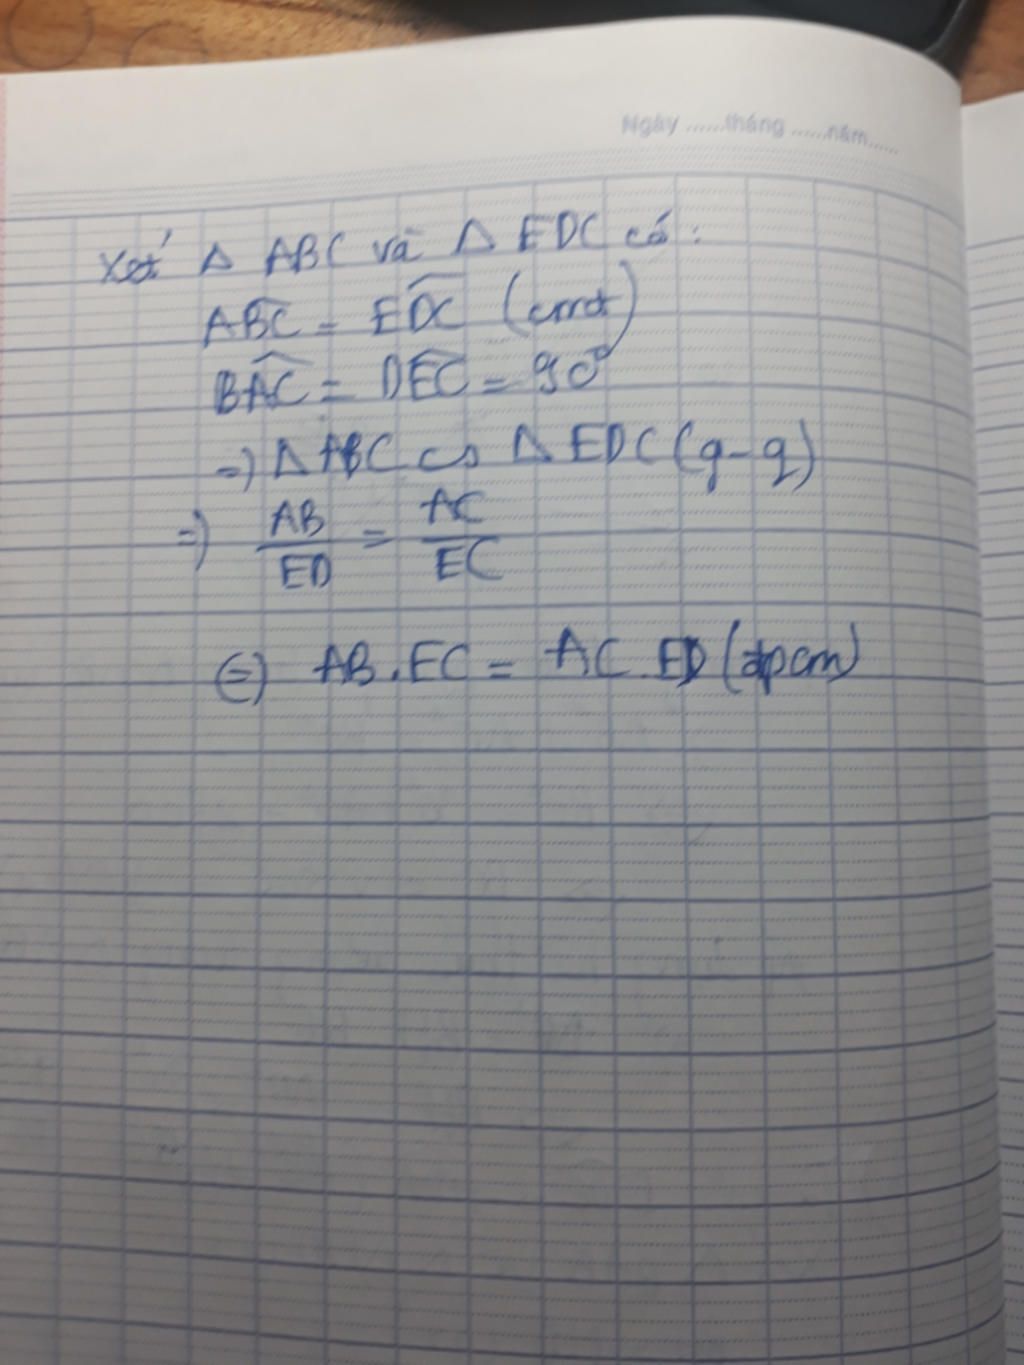 Ngày ......tháng ......năm......
Xét Δ ABC và Δ EDC có:
ABC = EDC (cmt)
BAC = DEC = 90°
=) Δ ABC ∽ Δ EDC (g-g)
=) AB/ED = AC/EC
(=) AB.EC = AC.ED (đpcm)